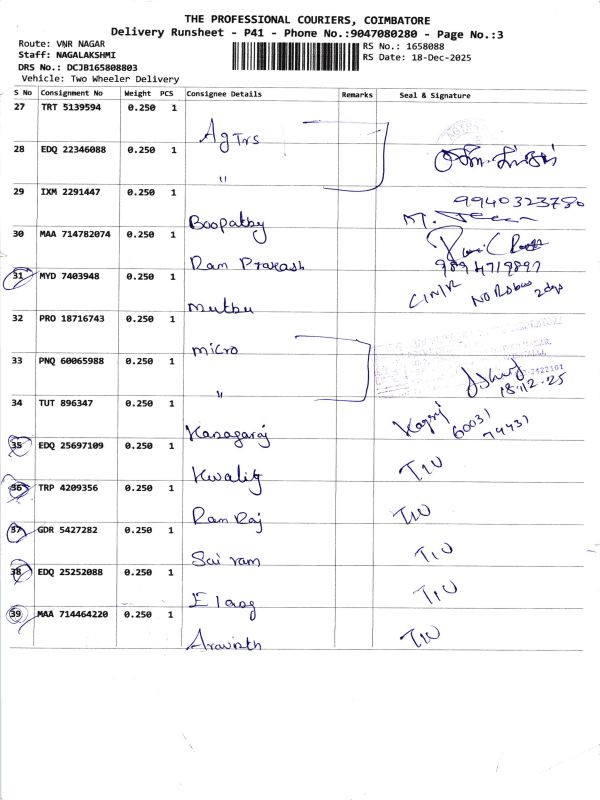 THE PROFESSIONAL COURIERS, COIMBATORE
Delivery Runsheet - P41 - Phone No.:9047080280 - Page No.:3
Route: VNR NAGAR
Staff: NAGALAKSHMI
DRS No.: DCJB165808803
Vehicle: Two Wheeler Delivery
RS No.: 1658088
RS Date: 18-Dec-2025
S No Consignment No Weight PCS Consignee Details Remarks Seal & Signature
27 TRT 5139594 0.250 1 Ag Trs
28 EDQ 22346088 0.250 1 "
29 IXM 2291447 0.250 1 Boopathy 9940323780
30 MAA 714782074 0.250 1 Ram Prakash 9894719897
31 MYD 7403948 0.250 1 Muthu
32 PRO 18716743 0.250 1 micro
33 PNQ 60065988 0.250 1 " 18.12.25
34 TUT 896347 0.250 1 Kanagaraj 60031
74431
35 EDQ 25697109 0.250 1 Kwality TIU
36 TRP 4209356 0.250 1 Ram Raj TIU
37 GDR 5427282 0.250 1 Sai ram TIU
38 EDQ 25252088 0.250 1 TIU
39 MAA 714464220 0.250 1 Aravinth TIU